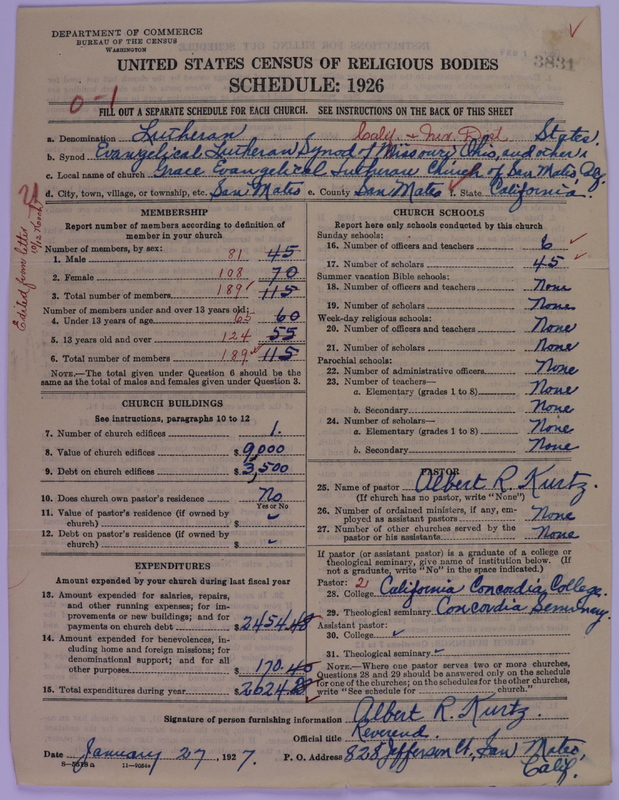 DEPARTMENT OF COMMERCE
BUREAU OF THE CENSUS
WASHINGTON
3831
UNITED STATES CENSUS OF RELIGIOUS BODIES
SCHEDULE: 1926
0-1
FILL OUT A SEPARATE SCHEDULE FOR EACH CHURCH. SEE INSTRUCTIONS ON THE BACK OF THIS SHEET
a. Denomination Lutheran Calif. + Nev. Dist States.
b. Synod Evangelical Lutheran Synod of Missouri, Ohio, and others
c. Local name of church Grace Evangelical Lutheran Church of San Mateo, Calif.
d. City, town, village, or township, etc. San Mateo e. County San Mateo f. State California.
Edited from letter
MEMBERSHIP
Report number of members according to definition of
member in your church
Number of members, by sex:
1. Male 81 45
2. Female 108 70
3. Total number of members 189 115
Number of members under and over 13 years old:
4. Under 13 years of age 65 60
5. 13 years old and over 124 55
6. Total number of members 189 115
NOTE.—The total given under Question 6 should be the
same as the total of males and females given under Question 3.
CHURCH BUILDINGS
See instructions, paragraphs 10 to 12
7. Number of church edifices 1.
8. Value of church edifices $ 9,000
9. Debt on church edifices $ 3,500
10. Does church own pastor's residence No
Yes or No
11. Value of pastor's residence (if owned by
church) $
12. Debt on pastor's residence (if owned by
church) $
EXPENDITURES
Amount expended by your church during last fiscal year
13. Amount expended for salaries, repairs,
and other running expenses; for im-
provements or new buildings; and for
payments on church debt $ 2454.48
14. Amount expended for benevolences, in-
cluding home and foreign missions; for
denominational support; and for all
other purposes $ 170.40
15. Total expenditures during year $ 2624.88
CHURCH SCHOOLS
Report here only schools conducted by this church
Sunday schools:
16. Number of officers and teachers 6
17. Number of scholars 45
Summer vacation Bible schools:
18. Number of officers and teachers None
19. Number of scholars None
Week-day religious schools:
20. Number of officers and teachers None
21. Number of scholars None
Parochial schools:
22. Number of administrative officers None
23. Number of teachers—
a. Elementary (grades 1 to 8) None
b. Secondary None
24. Number of scholars—
a. Elementary (grades 1 to 8) None
b. Secondary None
PASTOR
25. Name of pastor Albert R. Kurtz.
(If church has no pastor, write "None")
26. Number of ordained ministers, if any, em-
ployed as assistant pastors None
27. Number of other churches served by the
pastor or his assistants None
If pastor (or assistant pastor) is a graduate of a college or
theological seminary, give name of institution below. (If
not a graduate, write "No" in the space indicated.)
Pastor: 2
28. College California Concordia College.
29. Theological seminary Concordia Seminary.
Assistant pastor:
30. College
31. Theological seminary
NOTE.—Where one pastor serves two or more churches,
Questions 28 and 29 should be answered only on the schedule
for one of the churches; on the schedules for the other churches,
write "See schedule for church."
Signature of person furnishing information Albert R. Kurtz.
Official title Reverend.
Date January 27, 1927. P. O. Address 828 Jefferson Ct., San Mateo,
Calif.
8-5518a 11-9054a